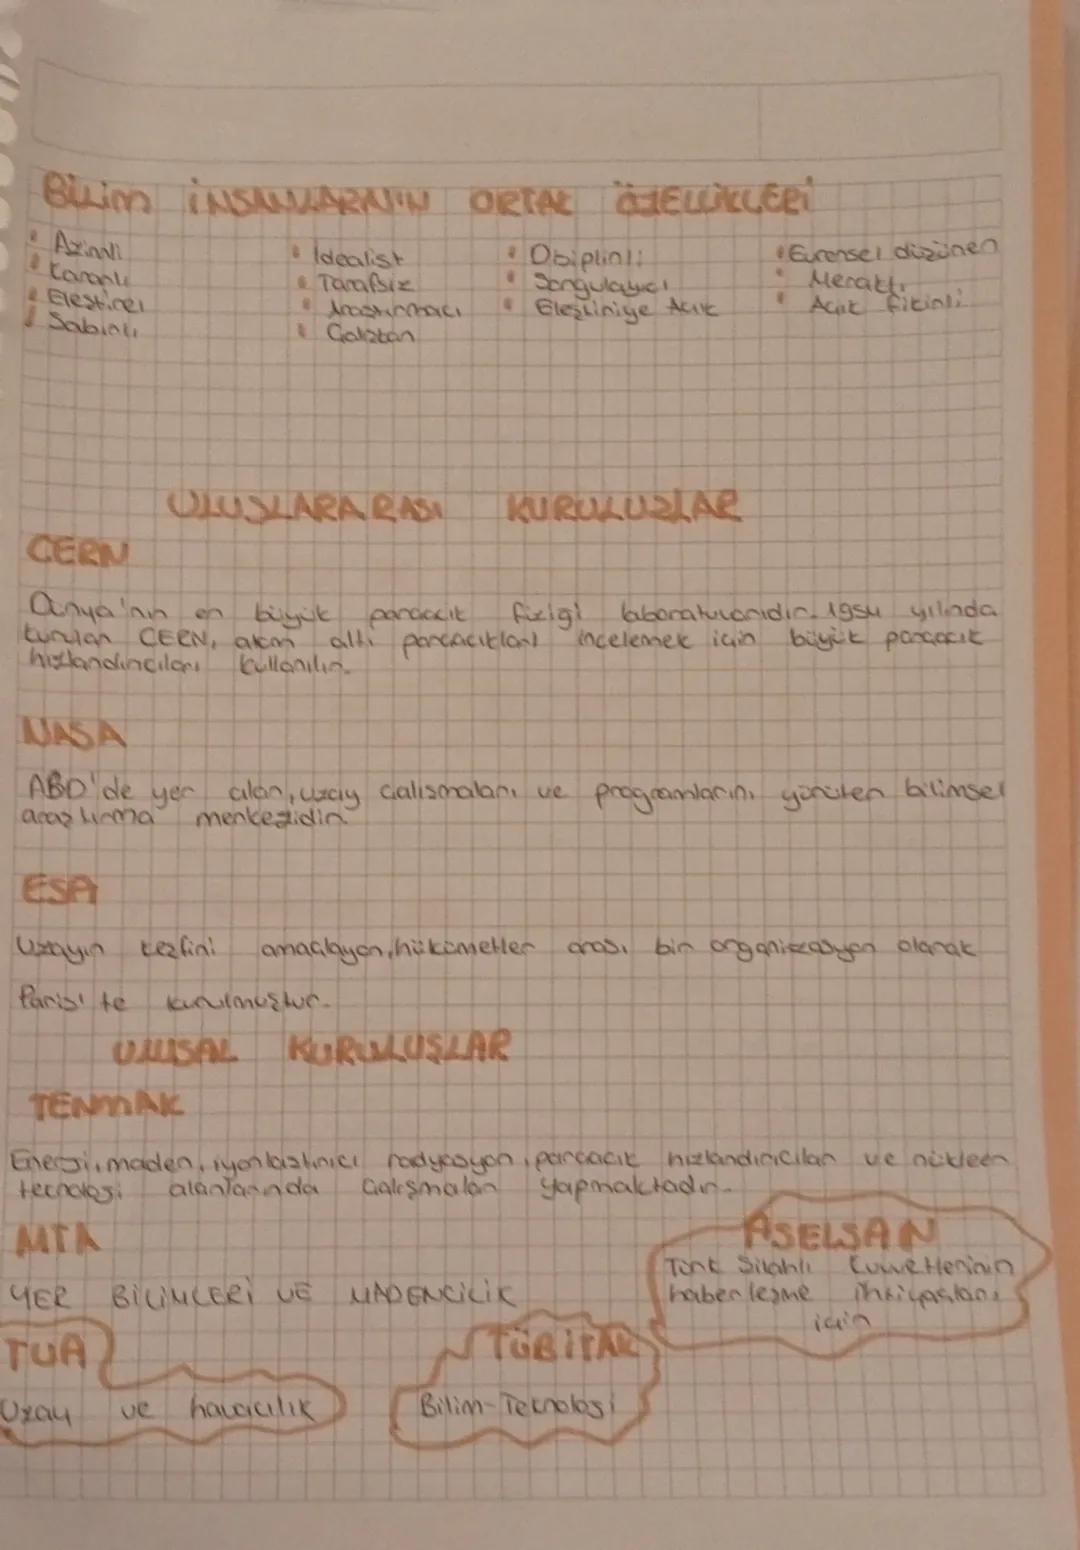 Bilim İNSANLARININ ORTAK ÖZELLİKLERİ
• Azimli
• Kararlı
• Eleştirel
• Sabırlı
• Idealist
• Tarafsız
• Araştırmacı
• Çalışkan
• Disiplinli
• Sorgulayıcı
• Eleştiriye Açık
• Evrensel düşünen
• Meraklı
• Açık fikirli
ULUSLARARASI KURULUŞLAR
CERN
Dünya'nın en büyük parçacık fiziği laboratuvarıdır. 1954 yılında
kurulan CERN, atom altı parçacıkları incelemek için büyük parçacık
hızlandırıcıları kullanılır.
NASA
ABD'de yer alan, uzay çalışmaları ve programlarını yürüten bilimsel
araştırma merkezidir.
ESA
Uzayın keşfini amaçlayan, hükümetler arası bir organizasyon olarak
Paris'te kurulmuştur.
ULUSAL KURULUŞLAR
TENMAK
Enerji, maden, iyonlaştırıcı radyasyon, parçacık hızlandırıcıları ve nükleer
teknoloji alanlarında çalışmaları yapmaktadır.
MTA
YER BİLİMLERİ VE MADENCİLİK
ASELSAN
Türk Silahlı Kuvvetlerinin
haberleşme ihtiyaçları
için
TUA
Uzay ve havacılık
TÜBİTAK
Bilim-Teknoloji